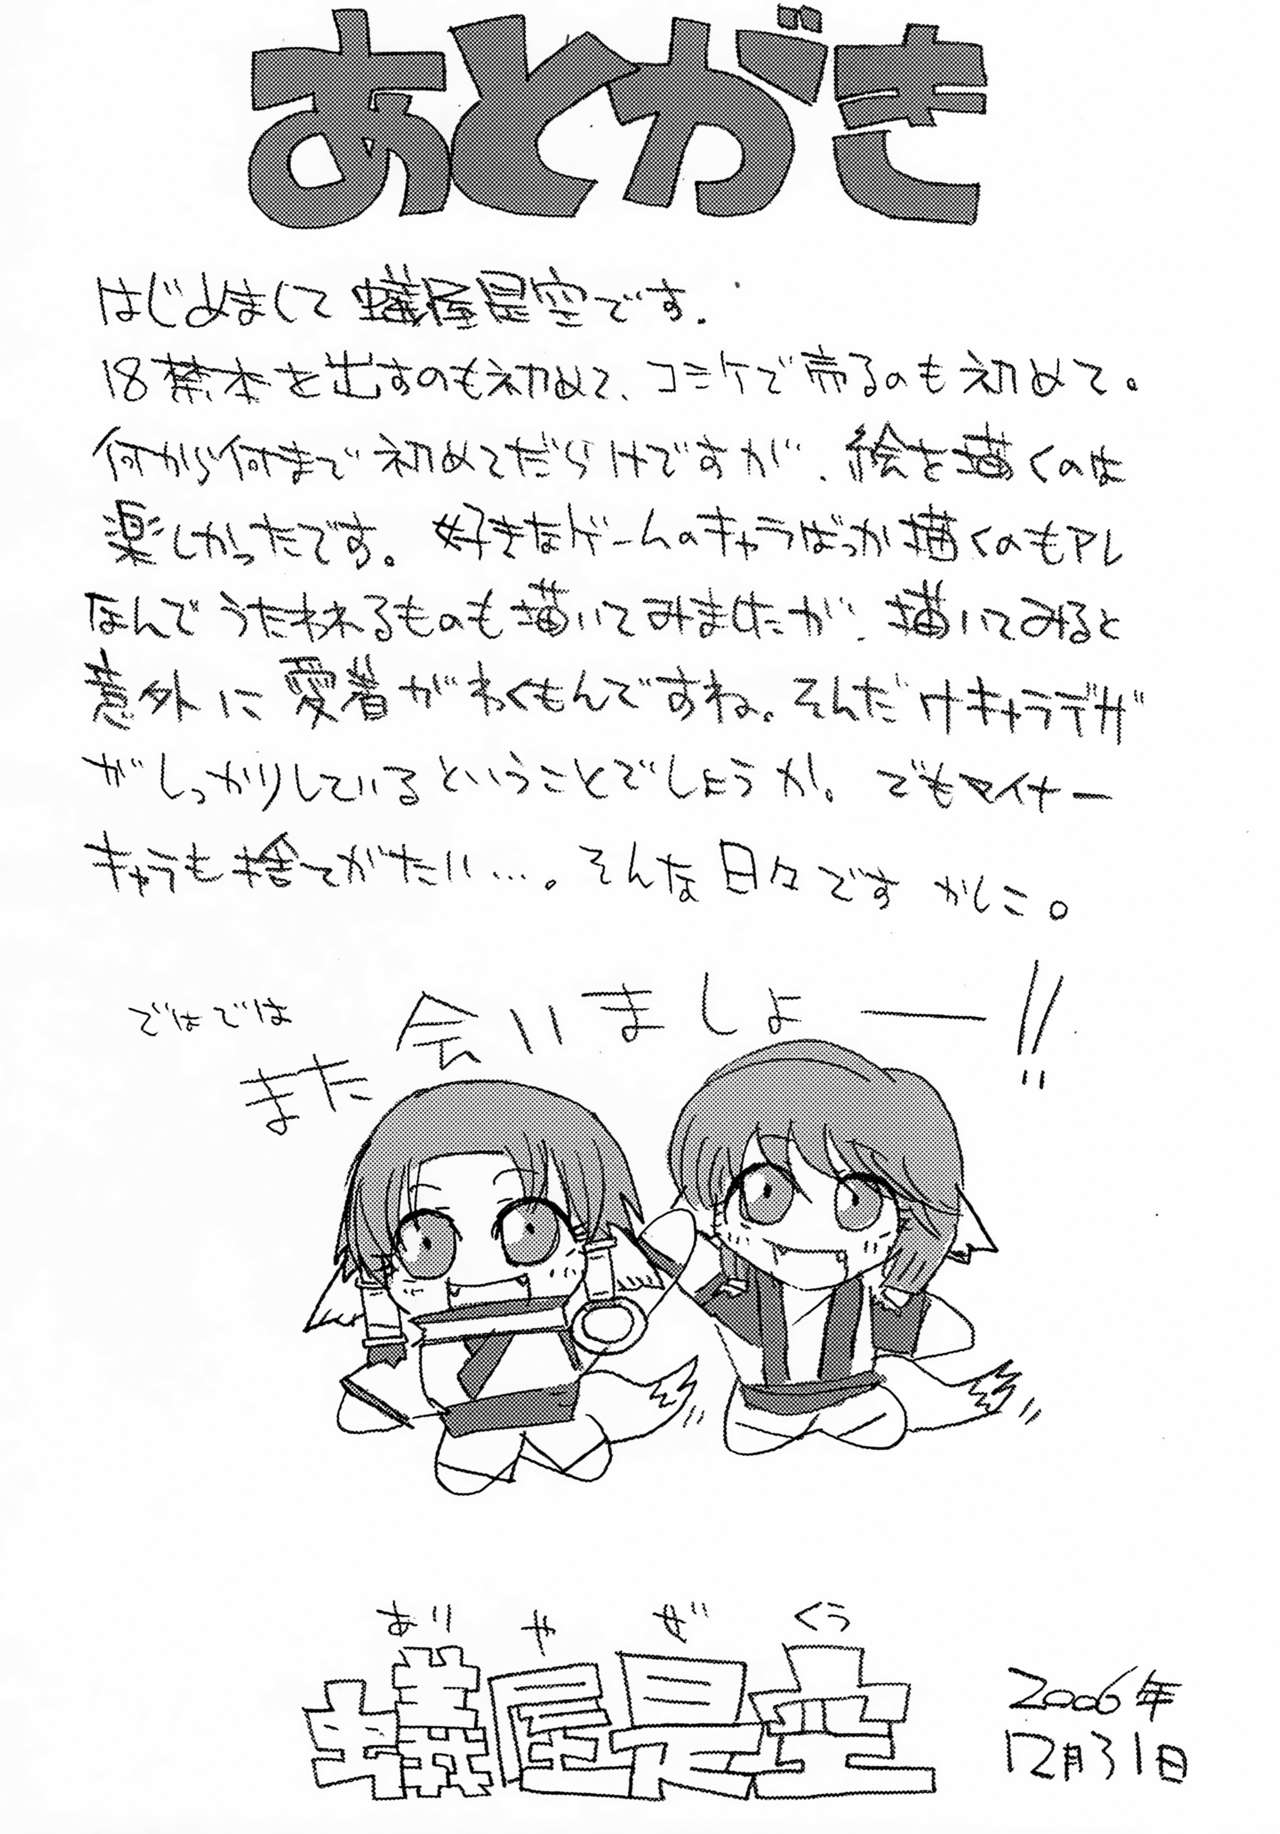 あとがき
はじめまして 蟻屋是空です。
18禁本を出すのも初めて、コミケで売るのも初めて。
何から何まで初めてだらけですが、絵を描くのは
楽しかったです。好きなゲームのキャラばっか描くのもアレ
なんでうたわれるものも描いてみましたが、描いてみると
意外に愛着がわくもんですね。そんだけキャラデザ
がしっかりしているということでしょうか。でもマイナー
キャラも捨てがたい…。そんな日々です かしこ。
ではでは
また会いましょー!!
ありやぜくう
蟻屋是空
2006年
12月31日